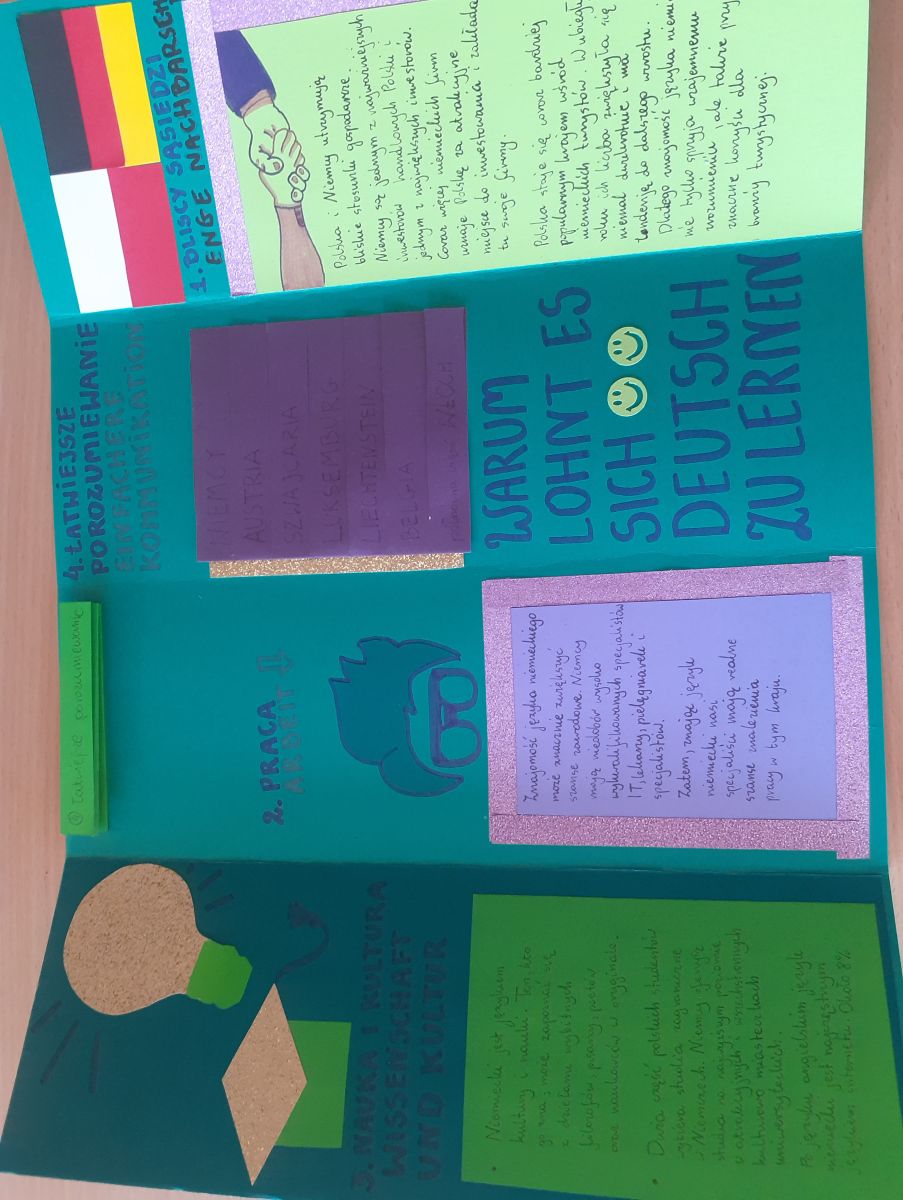 1. BLISCY SĄSIEDZI
ENGE NACHBARSCH
Polska i Niemcy utrzymują
bliskie stosunki gospodarze.
Niemcy są jednym z najważniejszych
inwestorów handlowych Polski i
jednym z największych inwestorów.
Coraz więcej niemieckich firm
uznaje Polskę za atrakcyjne
miejsce do inwestowania i zakłada
tu swoje firmy.
Polska staje się coraz bardziej
popularnym krajem wśród
niemieckich turystów. W ubiegły
roku ich liczba zwiększyła się
niemal dwukrotnie i ma
tendencję do dalszego wzrostu.
Dlatego znajomość języka niemi
nie tylko sprzyja wzajemnemu
zrozumieniu, ale także przy
znaczne korzyści dla
branży turystycznej.
4. ŁATWIEJSZE
POROZUMIEWANIE
EINFACHERE
KOMMUNIKATION
NIEMCY
AUSTRIA
SZWAJCARIA
LUKSEMBURG
LIECHTENSTEIN
BELGIA
WŁOCH
WARUM
LOHNT ES
SICH
DEUTSCH
ZU LERNEN
④ Łatwiejsze porozumiewanie
2. PRACA
ARBEIT
Znajomość języka niemieckiego
może znacznie zwiększyć
szanse zawodowe. Niemcy
mają niedobór wysoko
wykwalifikowanych specjalistów
IT, lekarzy, pielęgniarek i
specjalistów.
Zatem, znając język
niemiecki nasi
specjaliści mają realne
szanse znalezienia
pracy w tym kraju.
3. NAUKA I KULTURA
WISSENSCHAFT
UND KULTUR
• Niemiecki jest językiem
kultury i nauki. Ten, kto
go zna, może zapoznać się
z dziełami wybitnych
filozofów, pisarzy, poetów
oraz naukowców w oryginale.
• Duża część polskich studentów
wybiera studia zagraniczne
w Niemczech. Niemcy oferują
studia na najwyższym poziomie
w atrakcyjnych i wszechstronnych
kulturowo miasteczkach
uniwersyteckich.
Po języku angielskim język
niemiecki jest najczęstszym
językiem internetu. Około 8%